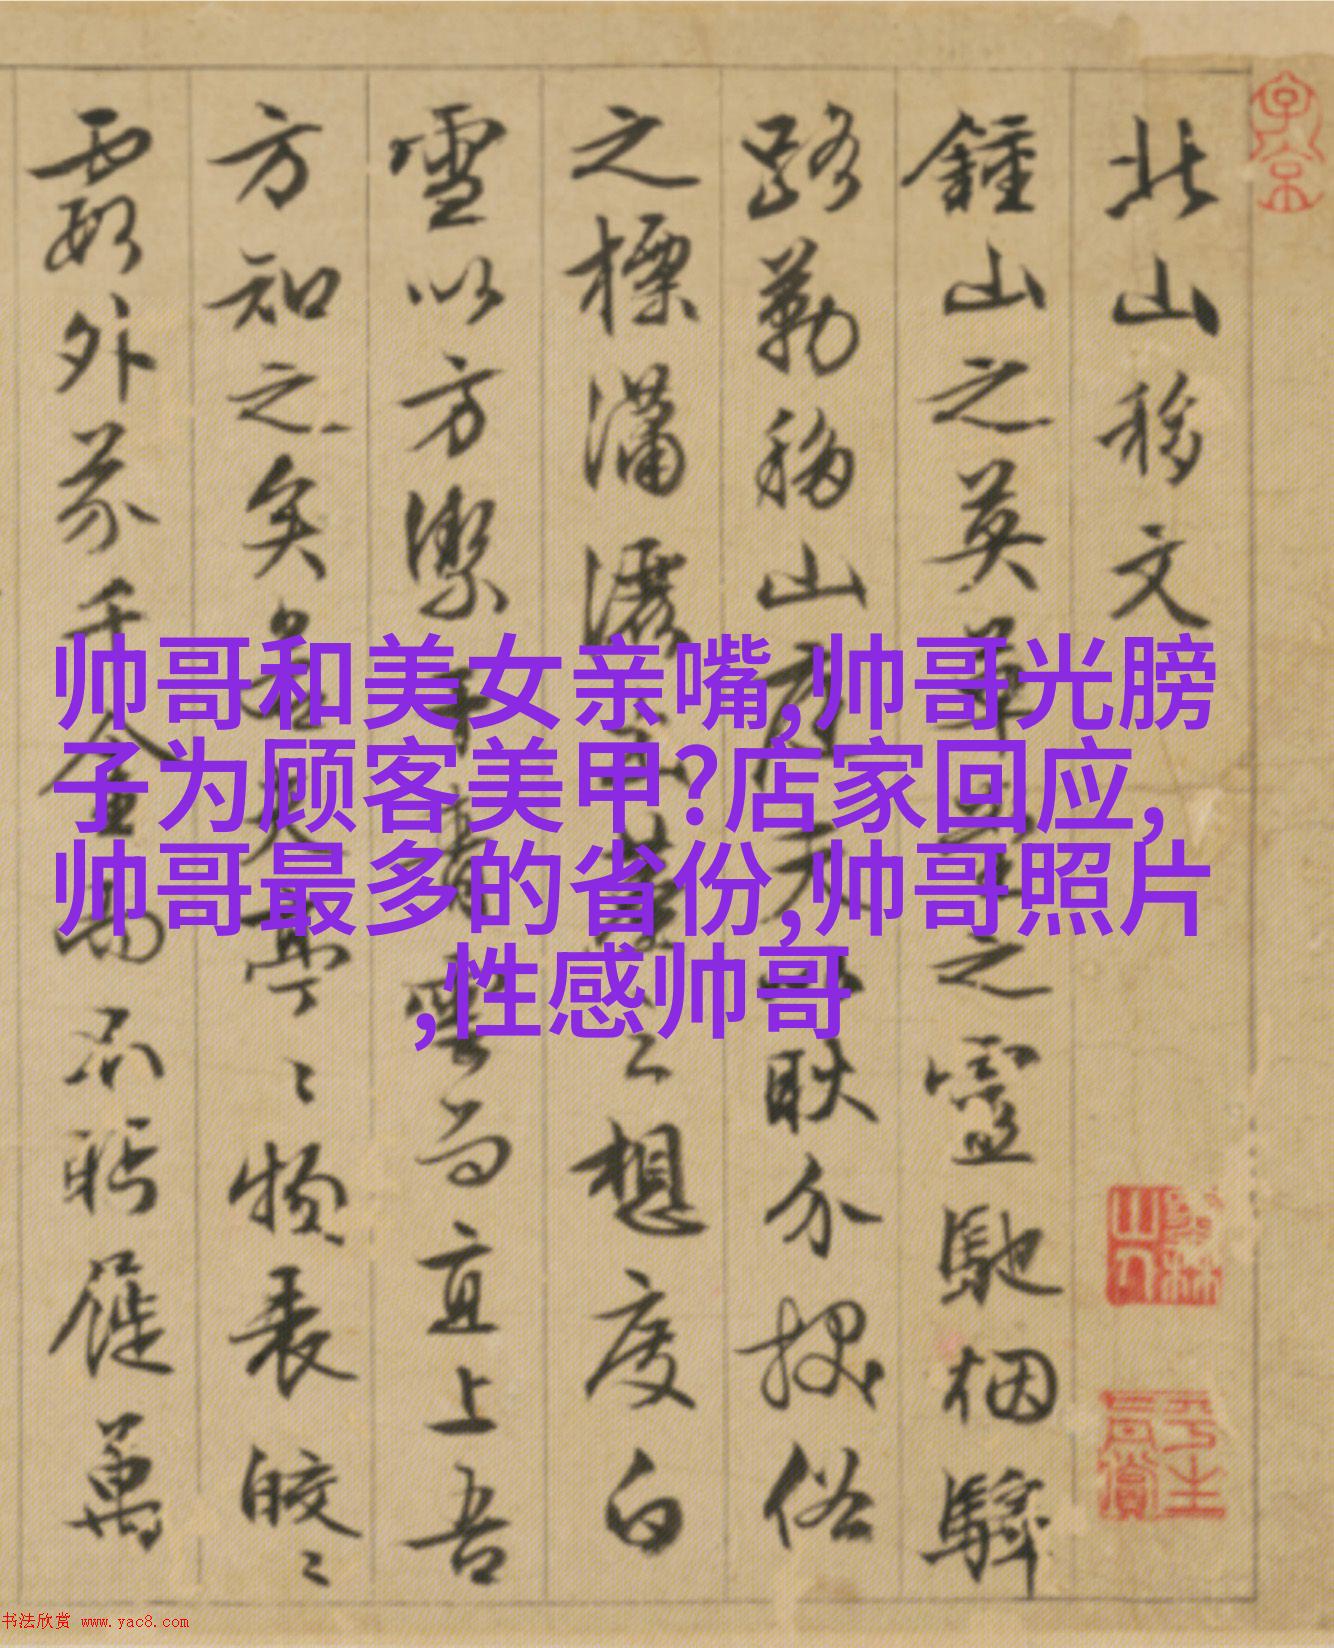 北山移文
鍾山之英草堂之靈馳烟驛
路勒移山庭夫以耿介拔俗
之標瀟灑出塵之想度白
雪以方潔干青雲而直上吾
方知之矣若其亭〻物表皎〻
霞外芥千金而不盼屣萬
帅哥和美女亲嘴,帅哥光膀
子为顾客美甲?店家回应,
帅哥最多的省份,帅哥照片
,性感帅哥
书法欣赏 www.yac8.com